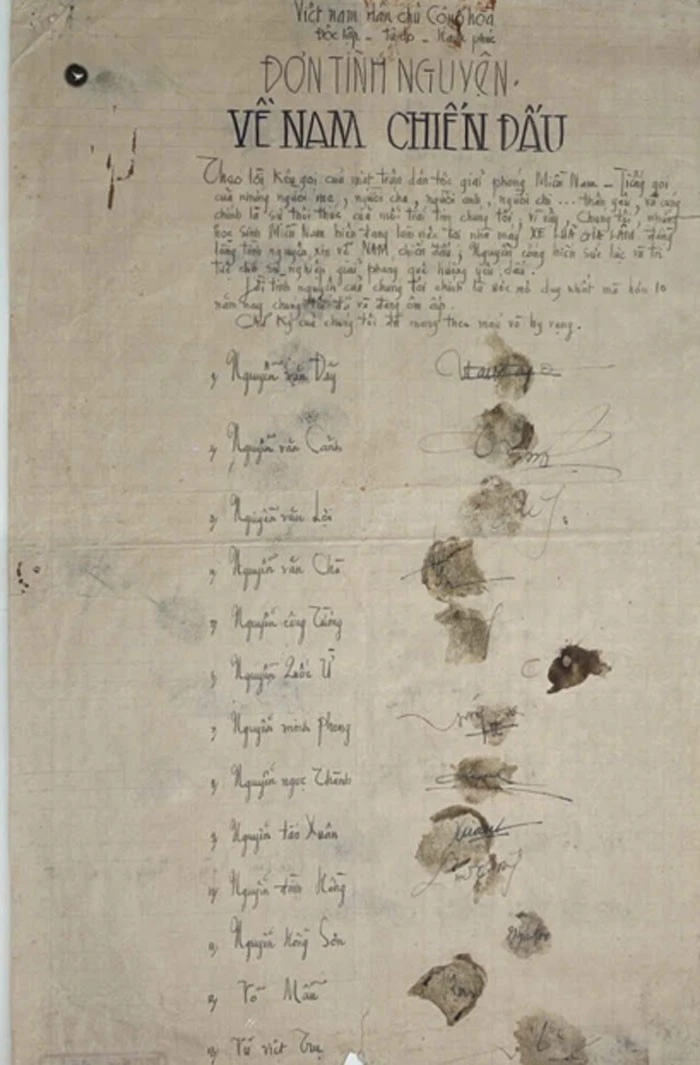 Việt nam dân chủ Cộng hòa
Độc lập - Tự do - Hạnh phúc
ĐƠN TÌNH NGUYỆN.
VỀ NAM CHIẾN ĐẤU
Theo lời kêu gọi của mặt trận dân tộc giải phóng Miền Nam - Tiếng gọi
của những người mẹ, người cha, người anh, người chị ... thân yêu, và cũng
chính là sự thôi thúc của mỗi trái tim chúng tôi, vì vậy, Chúng tôi, những
học sinh Miền Nam hiện đang làm việc tại nhà máy XE LỬA GIA LÂM đồng
lòng tình nguyện xin về NAM chiến đấu; Nguyện cống hiến sức lực và trí
tuệ cho sự nghiệp giải phóng quê hương yêu dấu.
Lời tình nguyện của chúng tôi chính là ước mơ duy nhất mà hơn 10
năm nay chúng tôi đã và đang ôm ấp.
Chữ ký của chúng tôi đã mang theo máu và hy vọng.
1) Nguyễn văn Dãy
2) Nguyễn văn Cảnh
3) Nguyễn văn Lợi
4) Nguyễn văn
5) Nguyễn công
6) Nguyễn Quốc
7) Nguyễn minh Phong
8) Nguyễn ngọc Thành
9) Nguyễn tấn Xuân
Xuân
10) Nguyễn
11) Nguyễn Hồng Sơn
12) Võ Mẫu
13) viết